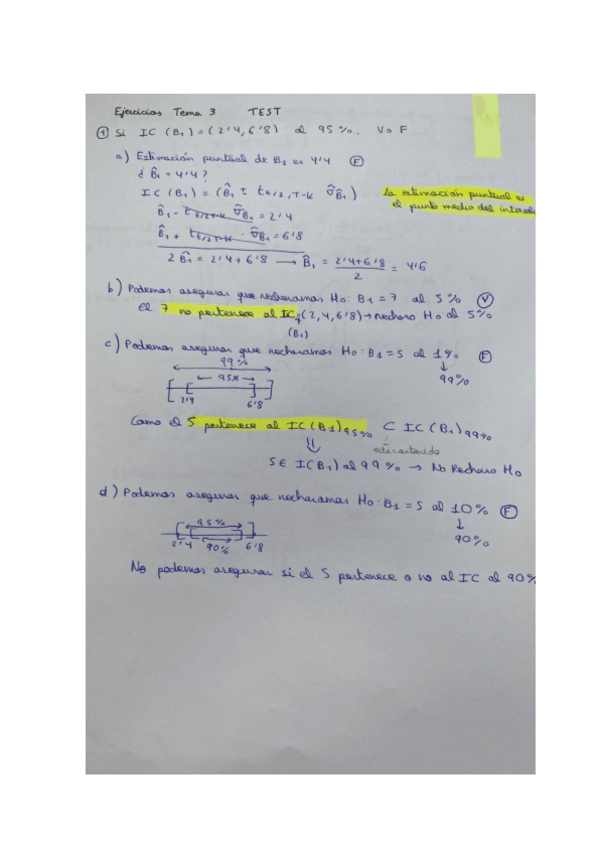 Ejercicios Tema 3 TEST
① Si IC (B₁) = (2'4, 6'8) al 95%. V o F
a) Estimación puntual de B₁ es 4'4 Ⓕ
¿ B̂₁ = 4'4 ?
IC (B₁) = (B̂₁ ± t ε/2, T-K σ̂B̂₁)
La estimación puntual es
el punto medio del interval
B̂₁ - t ε/2 T-K σ̂B̂₁ = 2'4
B̂₁ + t ε/2 T-K · σ̂B̂₁ = 6'8
2 B̂₁ = 2'4 + 6'8 → B̂₁ = 2'4+6'8 / 2 = 4'6
b) Podemos asegurar que rechazamos H₀: B₁ = 7 al 5% Ⓥ
El 7 no pertenece al IC = (2,4, 6'8) → rechazo H₀ al 5%
(B₁)
c) Podemos asegurar que rechazamos H₀: B₁ = 5 al 1% Ⓕ
↓
99%
99%
95%
2'4 6'8
Como el 5 pertenece al IC (B1) 95% ⊂ IC (B₁) 99%
está contenido
⇓
5 ∈ IC(B₁) al 99% → No Rechazo H₀
d) Podemos asegurar que rechazamos H₀: B₁ = 5 al 10% Ⓕ
↓
90%
95%
2'4 90% 6'8
No podemos asegurar si el 5 pertenece o no al IC al 90%